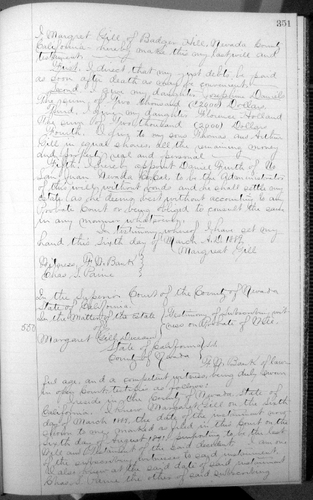 351
I Margret Gill of Badger Hill, Nevada County
California hereby make this my last will and
testament.
First. I direct that my just debts be paid
as soon after death as may be convenient.
Second. I give my daughter Daniels
the sum of two thousand (2000) Dollars
Third. I give my daughter Florence Holland
The sum of Two thousand (2000) Dollars
Fourth. I give to my sons Thomas and Arthur
Gill in equal shares all the remaining money
and property real and personal
Fifth. I hereby appoint Daniel Furth of No
San Juan Nevada Co Cal to be the Administrator
of this will without bonds and he shall settle my
estate as she deems best without accounting to any
Probate Court or being obliged to consult the same
in any manner whatsoever.
In testimony whereof I have set my
hand this sixth day of March A.D. 1889.
Margret Gill
Witness, Bank
Chas. S.
In the Superior Court of the County of Nevada
State of California.
In the Matter of the Estate Testimony of Subscribing
of on Probate of Will.
Margaret Gill Deceased
State of California
County of Nevada
Bank of law
ful age, and a competent witness being duly sworn
in open Court testifies as follows:
I reside in the County of Nevada State of
California. I knew Margaret Gill on the sixth
day of March 1889, the date of the instrument now
shown to me marked as filed in this Court on the
sixth day of August 1891 purporting to be the last
Will and Testament of the said decedent I am one
of the subscribing witnesses to said instrument.
I also knew at the said date of said instrument
Chas. S. the other of said subscribing